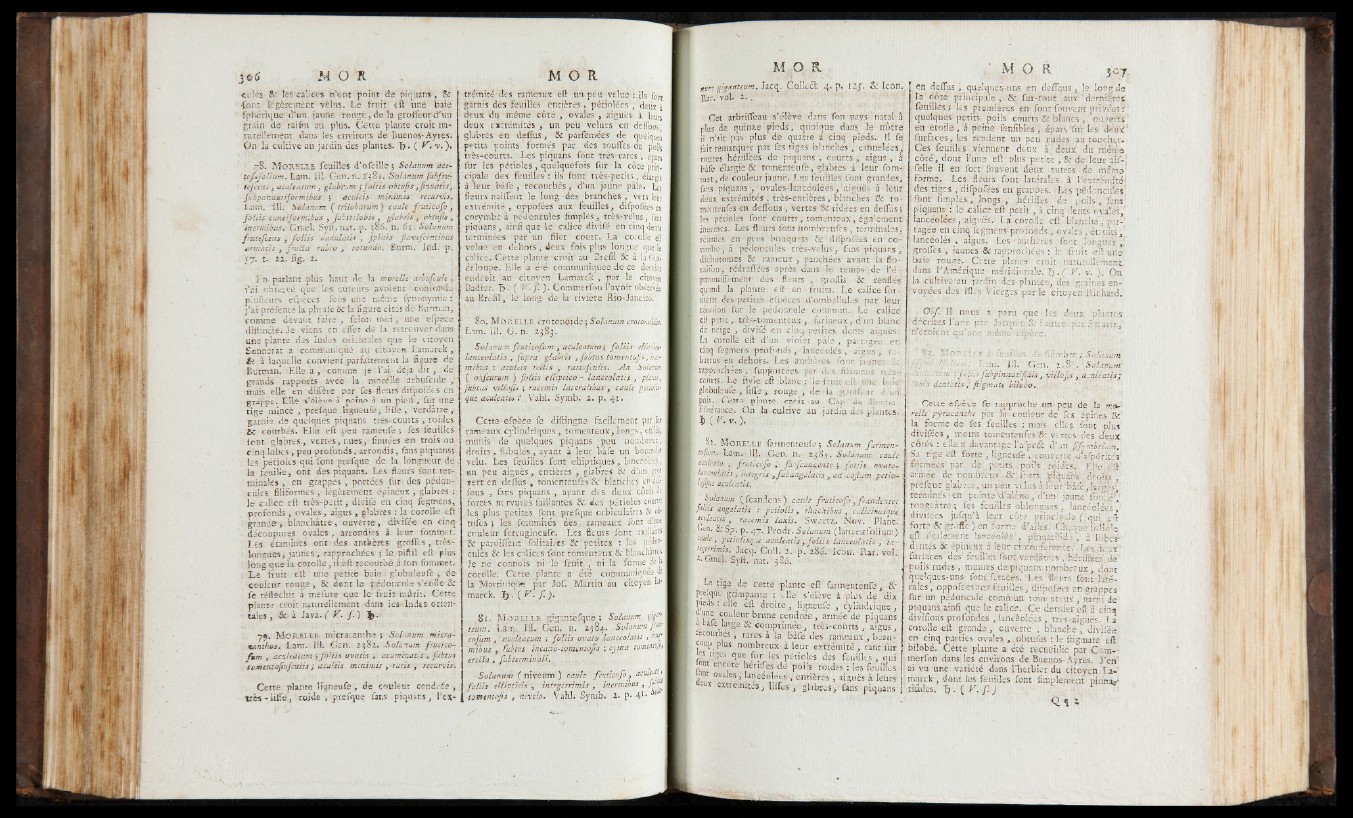 306 M O R
culés & les calices n'ont point de piquans, &
sont légèrement velus. Le fruit est une baie
sphérique d'un jaune rouge, de la grosseur d'un
grain de raisin au plus. Cette plante croît na-
turellement dans les environs de Buenos-Ayres.
On la cultive au jardin des plantes. ♄. ( V. v. ).
78. MORELLE feuilles d'oseille ; Solanum ace-
tosæfolium. Lam. Ill. Gen. n. 2381. Solanum subfru-
tescens, aculeatum, glabrum ; foliis obtusis, sinuatis,
subpanduriformibus ; aculeis minimis recurvis.
Lam. Ill. Solanum ( trilobatum ) caule fruticoso,
foliis cuneiformibus, subtrilobis, glabris, obtusis,
inermibus. Gmel. Syst. nat. p. 386. n. 61. Solanum
frutescens, foliis undulatis, spinis parvescentibus
armatis, fructu rubro, rotundo. Burm. Ind. p.
57. t. 22. fig. 2.
En parlant plus haut de la morelle arbuscule,
j'ai observé que les auteurs avoient confondu
plusieurs espèces sous une même synonymie :
j'ai présenté la phrase & la figure citées de Burman,
comme devant faire, selon moi, une espèce
distincte. Je viens en effet de la retrouver dans
une plante des Indes orientales que le citoyen
Sonnerat a communiqué au citoyen Lamarck,
& à laquelle convient parfaitement la figure de
Burman. Elle a, comme je l'ai déja dit, de
grands rapports avec la morelle arbuscule,
mais elle en diffère par ses fleurs disposées en
grappe. Elle s'élève à peine à un pied, sur une
tige mince, presque ligneuse, lisse, verdâtre,
garnie de quelques piquans très-courts, roides
& courbés. Elle est peu rameuse ; ses feuilles
sont glabres, vertes, nues, sinuées en trois ou
cinq lobes, peu profonds, arrondis, sans piquans ;
les pétioles qui sont presque de la longueur de
la feuille, ont des piquans. Les fleurs sont ter-
minales, en grappes, portées sur des pédon-
cules filiformes, légèrement épineux, glabres :
le calice est très-petit, divisé en cinq segmens,
profonds, ovales, aigus, glabres : la corolle est
grande, blanchâtre, ouverte, divisée en cinq
découpures ovales, arrondies à leur sommet.
Les étamines ont des anthères grosses, très-
longues, jaunes, rapprochées ; le pistil est plus
long que la corolle, il est recourbé à son sommet.
Le fruit est une petite baie globuleuse, de
couleur rouge, & dont le pédoncule s'enfle &
se réfléchit à mesure que le fruit mûrit. Cette
plante croît naturellement dans les Indes orien-
tales, & à Java. ( V. s. ) ♄.
79. MORELLE micracanthe ; Solanum micra-
canthos. Lam. Ill. Gen. n. 2382. Solanum frutico-
sum, aculeatum ; foliis ovatis, acuminatis, subtus
tomentosiusculis ; aculeis minimis, raris, recurvis.
Cette plante ligneuse, de couleur cendrée,
très-lisse, roide, presque sans piquans, l'ex-
M O R
trémité des rameaux est un peu velue : ils sont
garnis des feuilles entières, pétiolées, deux à
deux du même côté, ovales, aiguës à leurs
deux extrémités, un peu velues en dessous,
glabres en dessus, & parsemées de quelques
petits points formés par des touffes de poils
très-courts. Les piquans sont très rares, épars
sur les pétioles, quelquefois sur la côte prin-
cipale des feuilles : ils sont très-petits, élargis
à leur base, recourbés, d'un jaune pâle. Les
fleurs naissent le long des branches, vers leur
extrémité, opposées aux feuilles, disposées en
corymbe à pédoncules simples, très-velus, sans
piquans, ainsi que le calice divisé en cinq dents
terminées par un filet court. La corolle est
velue en dehors, deux fois plus longue que le
calice. Cette plante croît au Bresil & à la Gua-
deloupe. Elle a été communiquée de ce dernier
endroit au citoyen Lamarck, par le citoyen
Badier. ♄. ( V. s. ). Commerson l'avoit observée
au Bresil, le long de la rivière Rio-Janeiro.
80. MORELLE crotonoïde ; Solanum crotonoides.
Lam. Ill. G. n. 2383.
Solanum fruticosum, aculeatum ; foliis elliptico-
lanceolatis, supra glabris, subtus tomentosis, iner-
mibus ; aculeis rectis, ramosculis. An Solanum
( obscurum ) foliis elliptico-lanceolatis,
subtus villosis ; racemis lateralibus, caule
que aculeatis ? Vahl. Symb. 2. p. 41.
Cette espèce se distingue facilement par ses
rameaux cylindriques, tomenteux, longs, effilés,
munis de quelques piquans peu nombreux,
droits, subulés, ayant à leur base un bourrelet
velu. Les feuilles sont elliptiques, lancéolées,
un peu aiguës, entières, glabres & d'un
vert en dessus, tomenteuses & blanches en des-
sous, sans piquans, ayant des deux côtés de
fortes nervures saillantes & des pétioles courts :
les plus petites sont presque orbiculaires & ob-
tuses ; les sommités des rameaux sont d'une
couleur ferrugineuse. Les fleurs sont axillaires
& paroissent solitaires & petites : les pédon-
cules & les calices sont tomenteux & blanchâtres.
Je ne connois ni le fruit, ni la forme de la
corolle. Cette plante a été communiquée de
la Martinique par Jos. Martin au citoyen La-
marck. ♄. ( V. s. ).
81. MORELLE gigantesque ; Solanum gigan-
teum. Lam. Ill. Gen. n. 2384. Solanum fruti-
cosum, aculeatum ; foliis ovato lanceolatis, iner-
mibus, subtus incano-tomentosis ; cyma tomentosa
erecta, subterminali.
Solanum ( niveum ) caule fruticoso, aculeato,
foliis ellipticis, integerrimis, inermibus, subtus
tomentosis, niveis. Vahl. Symb. 2. p. 41. Sola-
M O R
num giganteum. Jacq. Collect. 4. p. 125. & Icon.
Rar. vol. 2.
Cet arbrisseau s'élève dans son pays natal à
plus de quinze pieds, quoique dans le nôtre
il n'aie pas plus de quatre à cinq pieds. Il se
fait remarquer par ses tiges blanches, cannelées,
toutes hérissées de piquans, courts, aigus, à
base élargie & tomenteuse, glabres à leur som-
met, de couleur jaune. Les feuilles sont grandes,
sans piquans, ovales-lancéolées, aiguës à leur
deux extrémités, très-entières, blanches & to-
menteuses en dessous, vertes & ridées en dessus ;
les pétioles sont courts, tomenteux, également
inermes. Les fleurs sont nombreuses, terminales,
réunies en gros bouquets & disposées en co-
rymbe, à pédoncules très-velus, sans piquans,
dichotomes & rameux, panchées avant la flo-
raison, redressées après dans le temps de l'é-
panouissement des fleurs, grossis & renflés
quand la plante est en fruits. Le calice for-
ment des petites espèces d'ombellules par leur
insertion sur le pédoncule commun. Le calice
est petit, très-tomenteux, farineux, d'un blanc
de neige, divisé en cinq petites dents aiguës.
La corolle est d'un violet pâle, partagée en
cinq segmens profonds, lancéolés, aigus,
battus en dehors. Les anthères sont jaunes &
rapprochées, supportées par des filamens très-
courts. Le style est blanc ; le fruit est une baie
globuleuse, lisse, rouge, de la grosseur d'un
pois. Cette plante croît au Cap de Bonne
Espérance. On la cultive au jardin des plantes.
♄ ( V. v. ).
82. MORELLE sarmenteuse ; Solanum sarmen-
tosum. Lam. Ill. Gen. n. 2385. Solanum caule
aculeato, fruticoso, sarmentoso ; foliis ovato-
lanceolatis, integris, subangulatis, ad costam petio-
losque aculeatis.
Solanum ( scandens ) caule fruticoso, scandente ;
foliis angulatis ; petiolis, rhachibus, calicibusque
aculeatis, racemis laxis. Swartz. Nov. Plant.
Gen. & Sp. p. 47. Prodr. Solanum ( lanceæfolium )
caule, petiolisque aculeatis, foliis lanceolatis, in-
tegerrimis. Jacq. Coll. 2. p. 286. Icon. Rar. vol.
2. Gmel. Syst. nat. 386.
La tige de cette plante est sarmenteuse, &
presque grimpante : elle s'élève à plus de dix
pieds : elle est droite, ligneuse, cylindrique,
d'une couleur brune cendrée, armée de piquans
à base large & comprimée, très-courts, aigus,
recourbés, rares à la base des rameaux, beau-
coup plus nombreux à leur extrémité, tant sur
les tiges que sur les pétioles des feuilles, qui
sont encore hérissés de poils roides : les feuilles
sont ovales, lancéolées, entières, aiguës à leurs
deux extrémités, lisses, glabres, sans piquans
M O R 307
en dessus, quelques-uns en dessous, le long de
la côte principale, & sur-tout aux dernières
feuilles : les premières en sont souvent privées :
quelques petits poils courts & blancs, ouverts
en étoile, à peine sensibles, épars sur les deux
surfaces, les rendent un peu rudes au toucher.
Ces feuilles viennent deux à deux du même
côté, dont l'une est plus petite, & de leur ais-
selle il en sort souvent deux autres de même
forme. Les fleurs sont latérales à l'extrémité
des tiges, disposées en grappes. Les pédoncules
sont simples, longs, hérissés de poils, sans
piquans : le calice est petit, à cinq dents ovales,
lancéolées, aiguës. La corolle est blanche, par-
tagée en cinq segmens profonds, ovales, étroits,
lancéolés, aigus. Les anthères sont longues,
grosses, jaunes & rapprochées : le fruit est une
baie rouge. Cette plante croît naturellement
dans l'Amérique méridionale. ♄. ( V. v. ). On
la cultive au jardin des plantes, des graines en-
voyées des Isles Vierges par le citoyen Richard.
Obs. Il nous a paru que les deux plantes
décrites l'une par Jacquin & l'autre par Swartz,
n'étoient qu'une même espèce.
Cette espèce se rapproche un peu de la mo-
relle pyracanthe par la couleur de ses épines &
la forme de ses feuilles : mais elles sont plus
divisées, moins tomenteuses & vertes des deux
côtés : elle a davantage l'aspect d'un sisymbrium.
Sa tige est forte, ligneuse, couverte d'aspérités
formées par de petits poils roides. Elle est
armée de nombreux & forts piquans droits,
presque glabres, un peu velus à leur base, larges,
terminés en pointe d'alêne, d'un jaune foncé,
rougeâtre ; ses feuilles oblongues, lancéolées,
divisées jusqu'à leur côte principale ( qui est
forte & grosse ) en forme d'ailes. Chaque foliole
est également lancéolée, pinnatifide, à lobes
dentés & épineux à leur circonférence. Les deux
surfaces des feuilles sont verdâtres, hérissées de
poils rudes, munies de piquans nombreux, dont
quelques-uns sont foncés. Les fleurs sont laté-
rales, opposées aux feuilles, disposées en grappes
sur un pédoncule commun tomenteux, garni de
piquans ainsi que le calice. Ce dernier est à cinq
divisions profondes, lancéolées, très-aiguës. La
corolle est grande, ouverte, blanche, divisée
en cinq parties ovales, obtuses : le stigmate est
bilobé. Cette plante a été recueillie par Com-
merson dans les environs de Buenos-Ayres. J'en
ai vu une variété dans l'herbier du citoyen La-
marck, dont les feuilles sont simplement pinna-
tifides. ♄. ( V. s. )
Q q 2